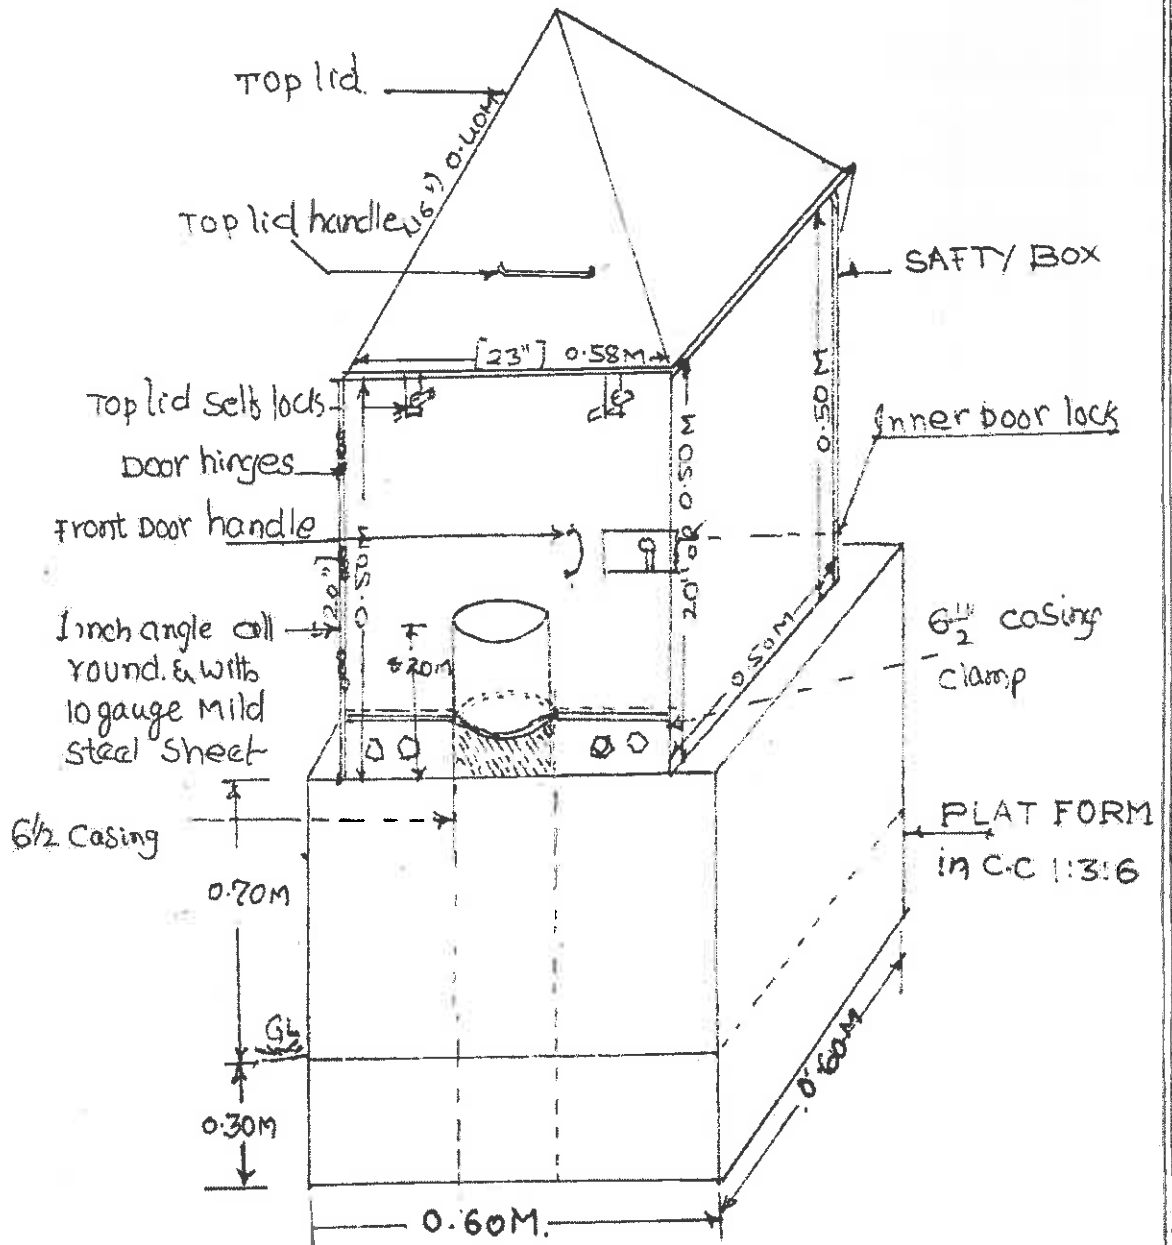 TOP lid
(16") 0.40M
TOP lid handle
SAFTY BOX
[23"] 0.58M
0.50M
TOP lid Self lock
Inner Door lock
Door hinges
20" OR 0.50M
Front Door handle
0.50M
20")
1 inch angle all
round. & with
10 gauge Mild
Steel Sheet
20M
0.50M
6½" casing
clamp
6½ Casing
PLAT FORM
in C.C 1:3:6
0.70M
GL
0.60M
0.30M
0.60M.